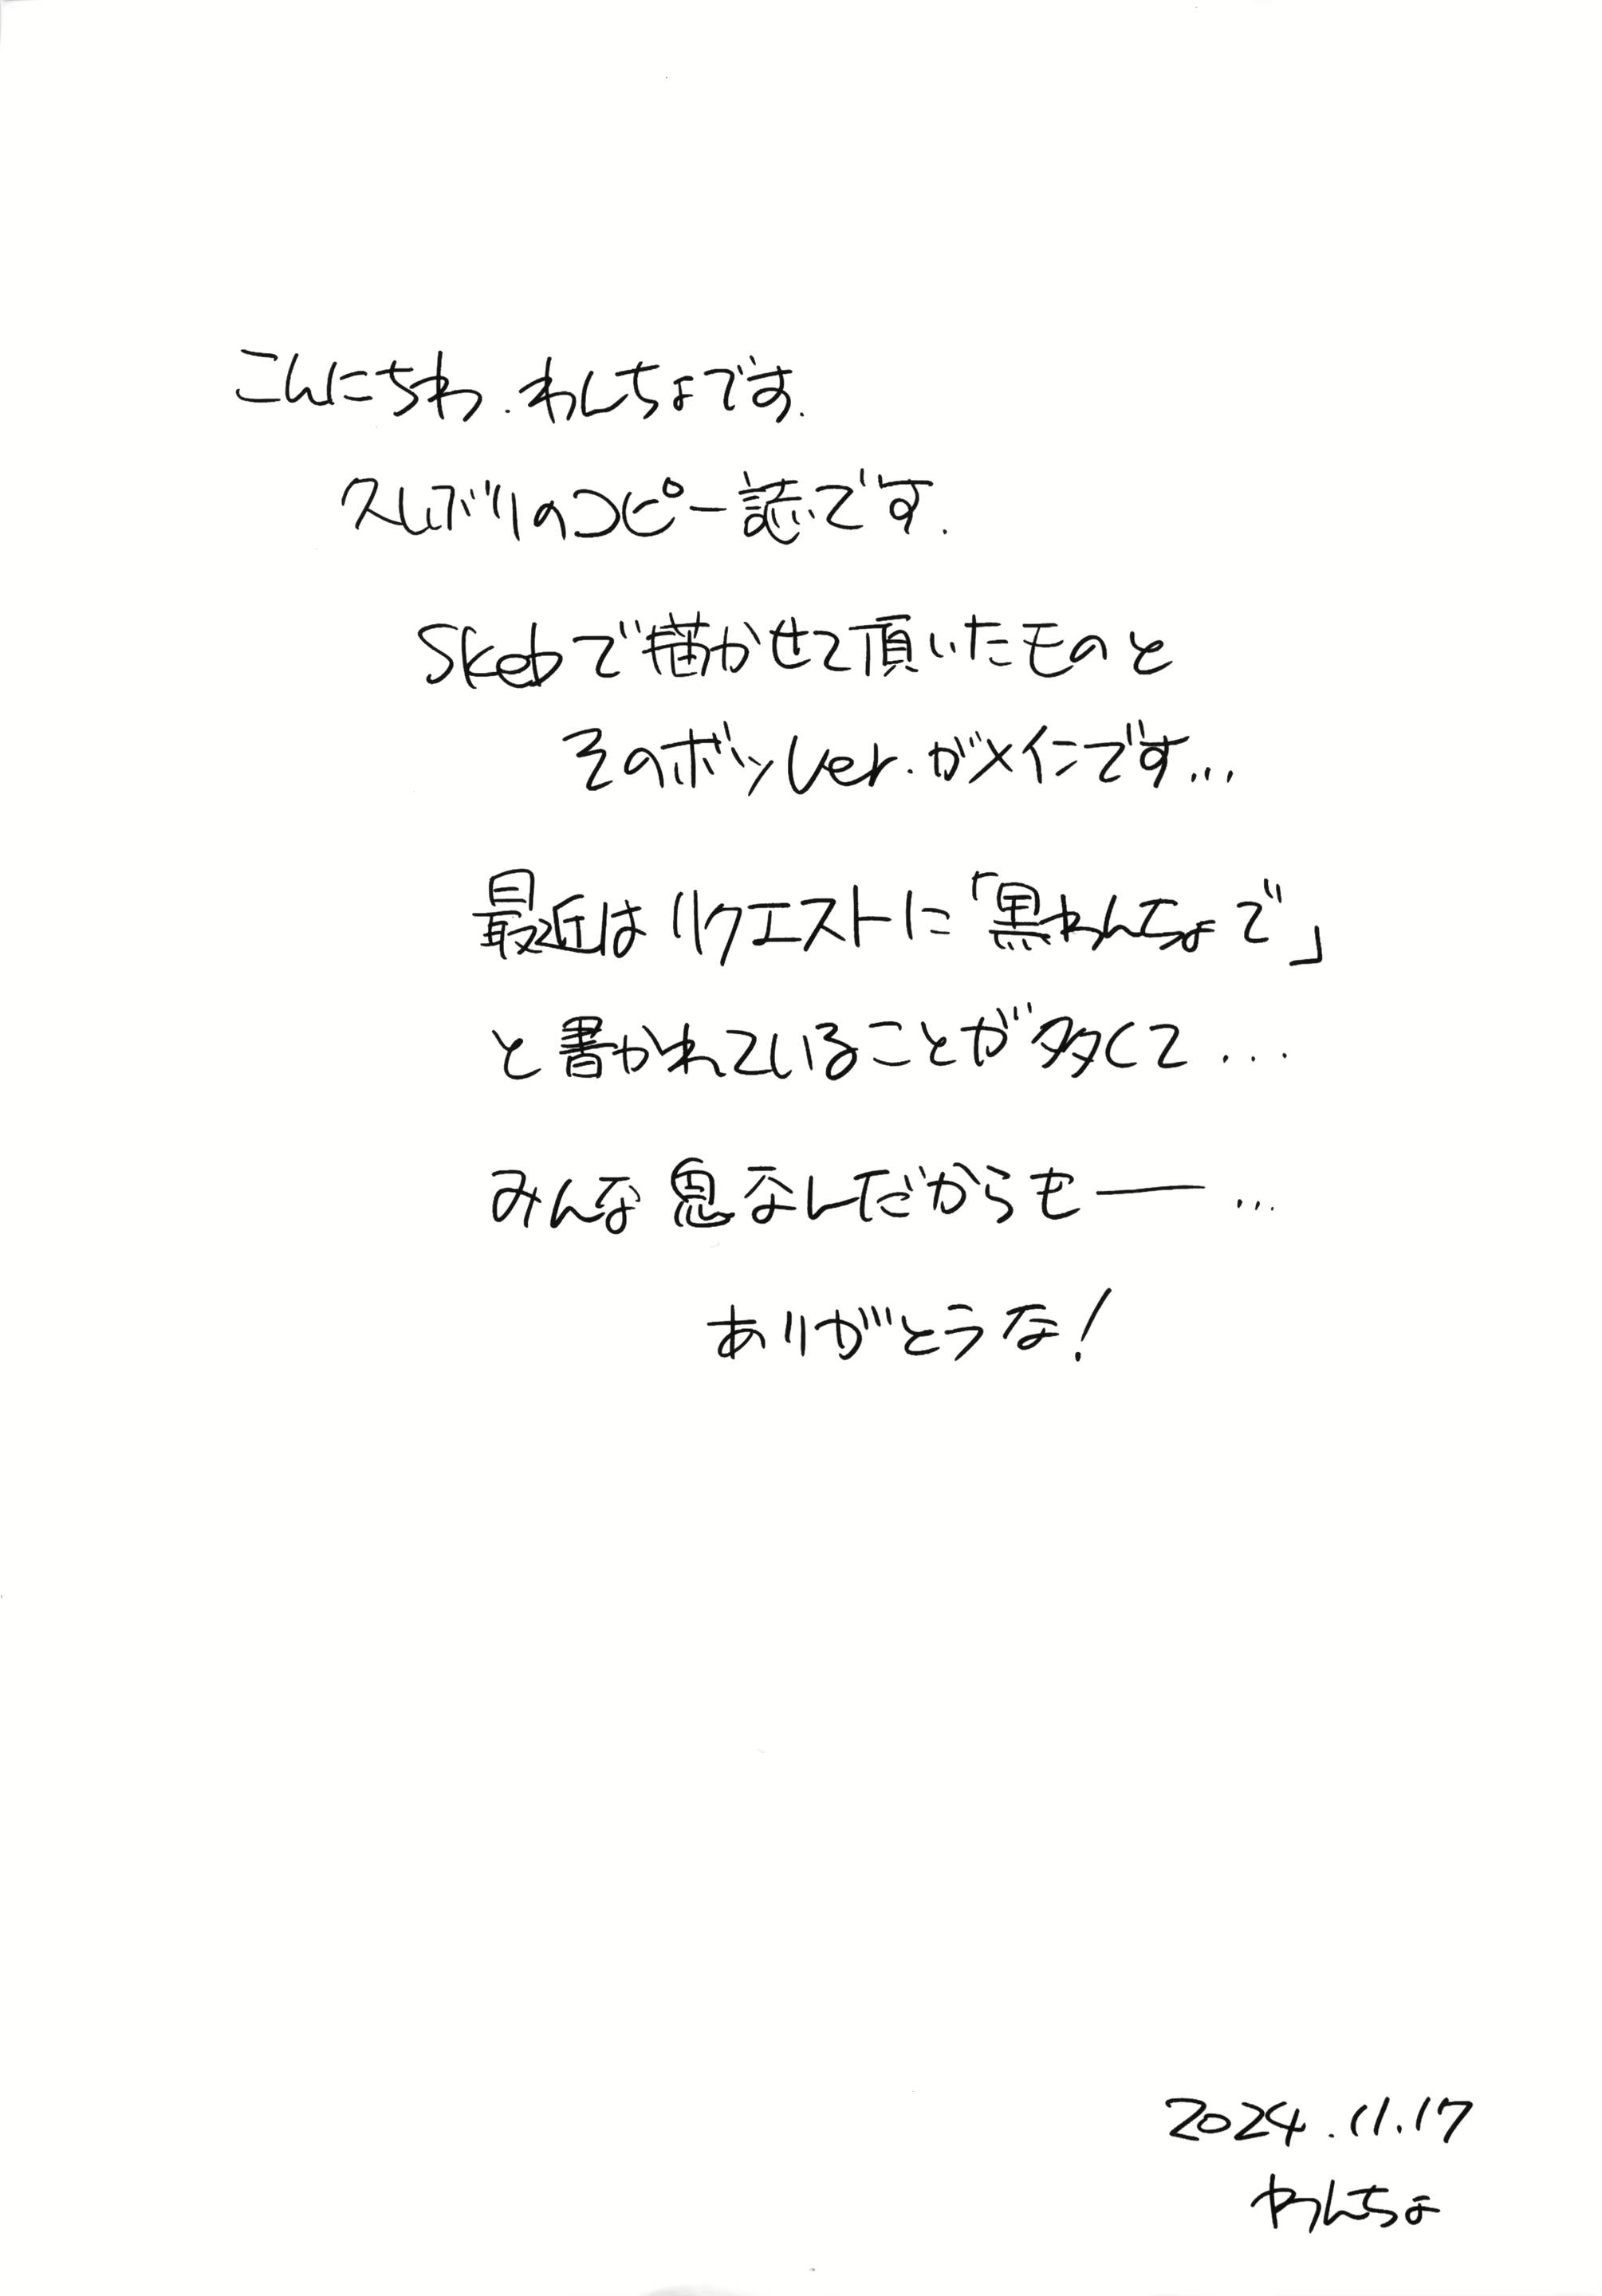 こんにちわ.わんちょです.
久しぶりのコピー誌です.
Skebで描かせて頂いたものと
そのボツver.がメインです...
最近はリクエストに「黒わんちょで」
と書かれていることが多くて...
みんな悪なんだからもー...
ありがとうな!
2024.11.17
わんちょ